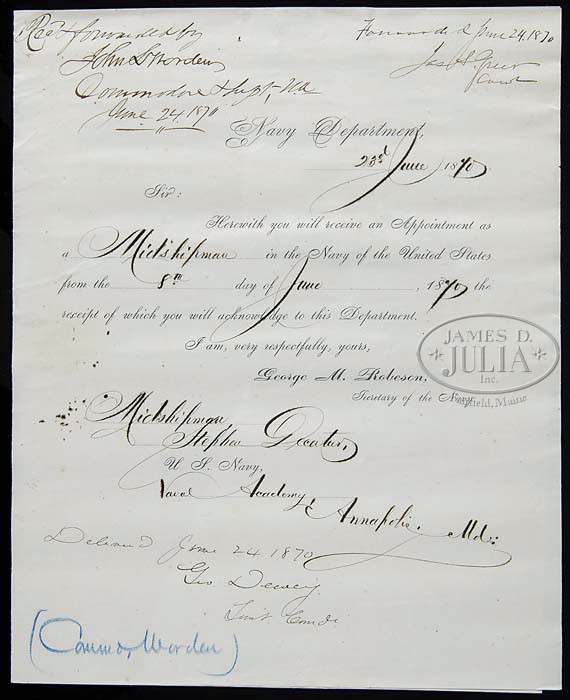 Rec'd & forwarded by
John L Worden
Commodore & Supt. N.A.
June 24, 1870
Forwarded June 24, 1870
Jas A Greer
Comdr
Navy Department,
23d June 1870
Sir:
Herewith you will receive an Appointment as
a Midshipman in the Navy of the United States
from the 8th day of June, 1870, the
receipt of which you will acknowledge to this Department.
I am, very respectfully, yours,
George M. Robeson,
Secretary of the Navy
JAMES D.
JULIA
Inc.
Fairfield, Maine
Midshipman,
Stephen Decatur,
U. S. Navy,
Naval Academy,
Annapolis. Md:
Delivered June 24 1870
Geo Dewey
Comdr
(Commo, Worden)